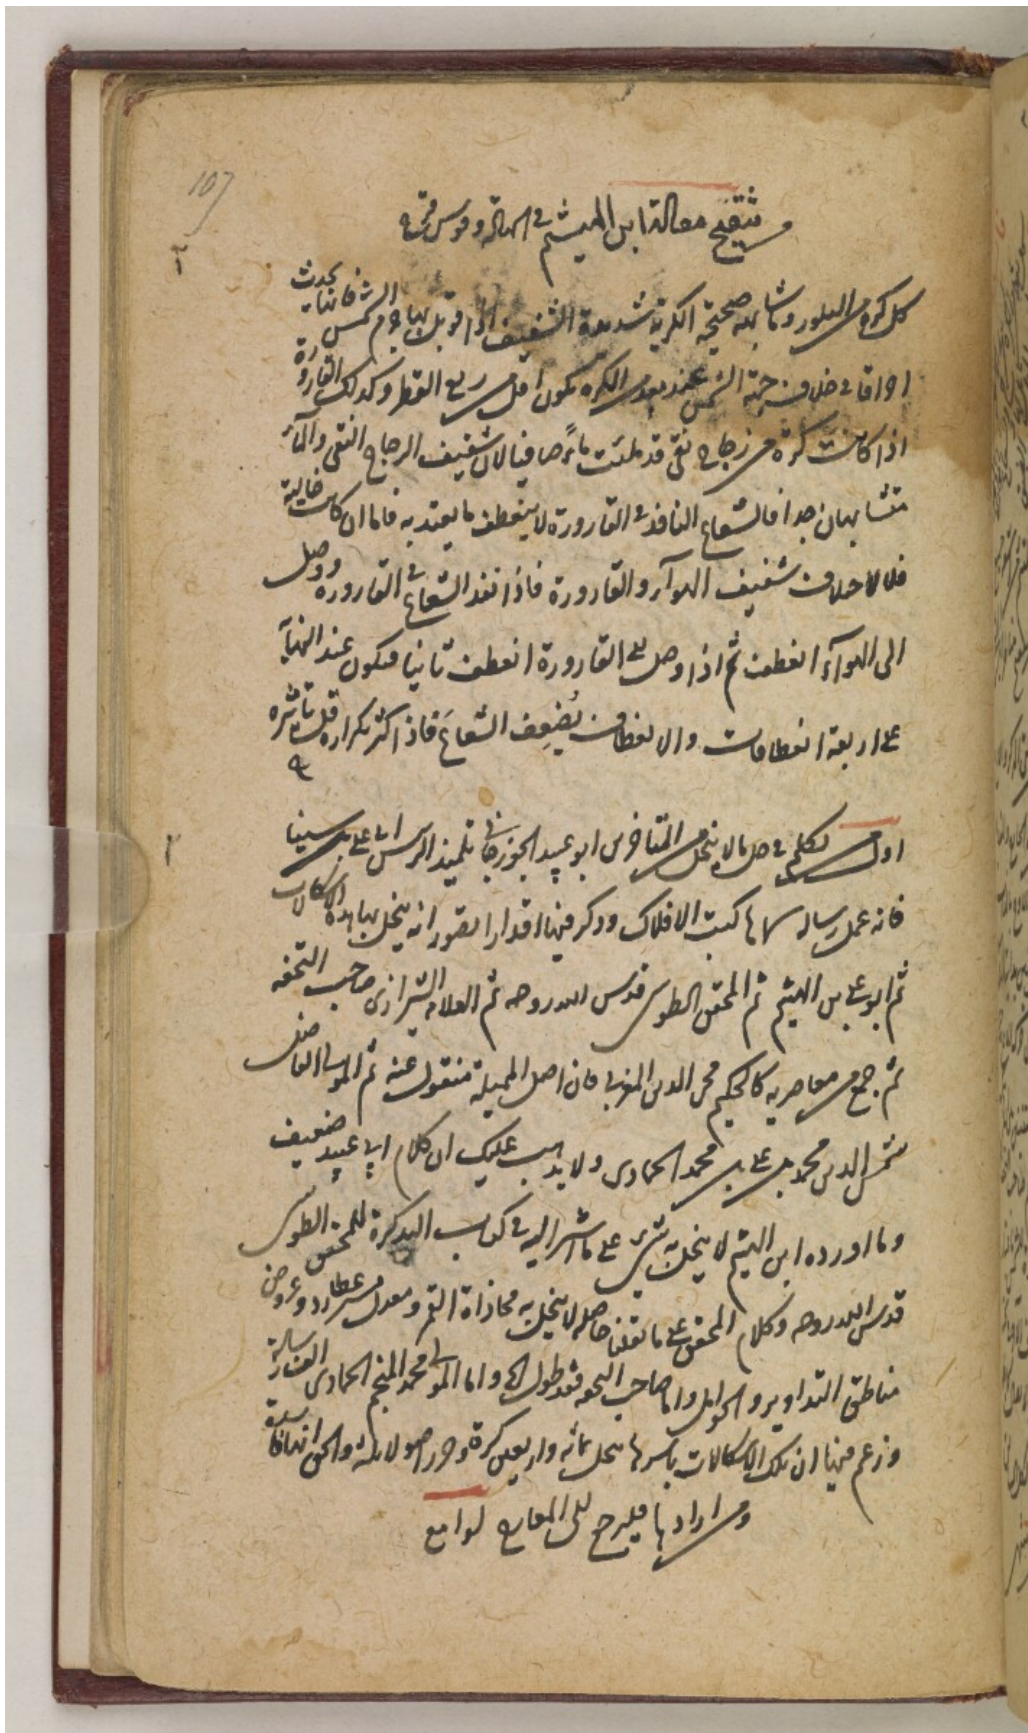 107
من تنقيح مقالة ابن الهيثم في الهالة وقوس قزح
٢
كل كرة من البلور وما شابهه صحيحة الكرية شديدة الشفيف اذا قوبل بها جرم الشمس فانها يحدث
احراقا في خلاف جهة الشمس عند بعد من الكرة يكون اقل من ربع القطر وكذلك القارورة
اذا كانت كرة من زجاج نقي قد ملئت ماءً صافيا لان شفيف الزجاج النقي والماء
متشابهان جدا فالشعاع النافذ في القارورة لا ينعطف ما يعتد به فاما ان كانت خالية
فلاختلاف شفيف الهوآء والقارورة فاذا نفذ الشعاع في القارورة ووصل
الى الهوآء انعطف ثم اذا وصل الى القارورة انعطف ثانيا فيكون عند النهاية
على اربعة انعطافات والانعطاف يُضعِف الشعاعَ فاذا كثر تكراره قل تأثيره
٢
اول من تكلم في حل ما لا ينحل من المتأخرين ابو عبيد الجوزجاني تلميذ الرئيس ابي علي بن سينا
فانه عمل رسالة سماها كيب الافلاك وذكر فيها اقدارا تصور انه ينحل بها هذه الاشكالات
ثم ابو علي بن الهيثم ثم المحقق الطوسي قدس الله روحه ثم العلامة الشيرازي صاحب التحفه
ثم جمع من معاصريه كالحكيم محي الدين المغربي فان اصل المميلة منقول عنه ثم المولى الفاضل
شمس الدين محمد بن علي بن محمد الحمادي ولا يذهب عليك ان كلام ابي عبيد ضعيف
وما اورده ابن الهيثم لا ينحل به شيء على ما اشير اليه في كتاب التذكرة للمحقق الطوسي
قدس الله روحه وكلام المحقق على ما نقلنا حاصله لا ينحل به محاذاة القمر ومعدل مسير عطارد وعروض
مناطق التداوير والحوامل واما صاحب التحفه فقد طول واما المولى محمد المنجم الحمادي الف رسالة
وزعم فيها ان تلك الاشكالات باسرها تنحل بمائة واربعين كرة وحرر اصولا ثلثة والحق انها فاسدة
ومن ارادها فليرجع الى المعارج لوامع